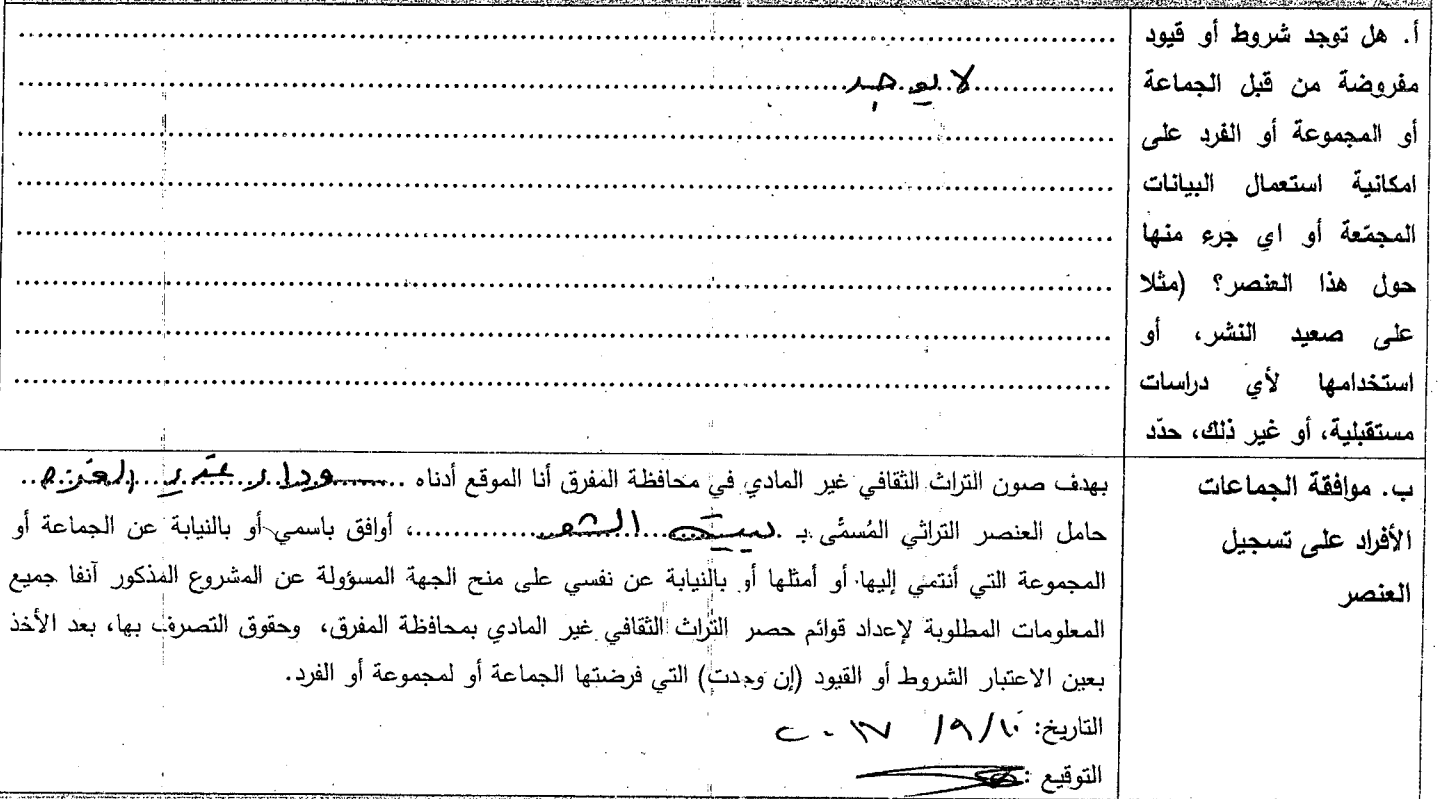 أ. هل توجد شروط أو قيود
مفروضة من قبل الجماعة
أو المجموعة أو الفرد على
امكانية استعمال البيانات
المجمّعة أو اي جرء منها
حول هذا العنصر؟ (مثلا
على صعيد النشر، أو
استخدامها لأي دراسات
مستقبلية، أو غير ذلك، حدّد
لا يوجد
ب. موافقة الجماعات
الأفراد على تسجيل
العنصر
بهدف صون التراث الثقافي غير المادي في محافظة المفرق أنا الموقع أدناه
حامل العنصر التراثي المُسمَّى بـ بيت الشعر، أوافق باسمي أو بالنيابة عن الجماعة أو
المجموعة التي أنتمي إليها أو أمثلها أو بالنيابة عن نفسي على منح الجهة المسؤولة عن المشروع المذكور آنفا جميع
المعلومات المطلوبة لإعداد قوائم حصر التراث الثقافي غير المادي بمحافظة المفرق، وحقوق التصرف بها، بعد الأخذ
بعين الاعتبار الشروط أو القيود (إن وجدت) التي فرضتها الجماعة أو لمجموعة أو الفرد.
التاريخ: ١٠/ ٩/ ٢٠١٧
التوقيع :